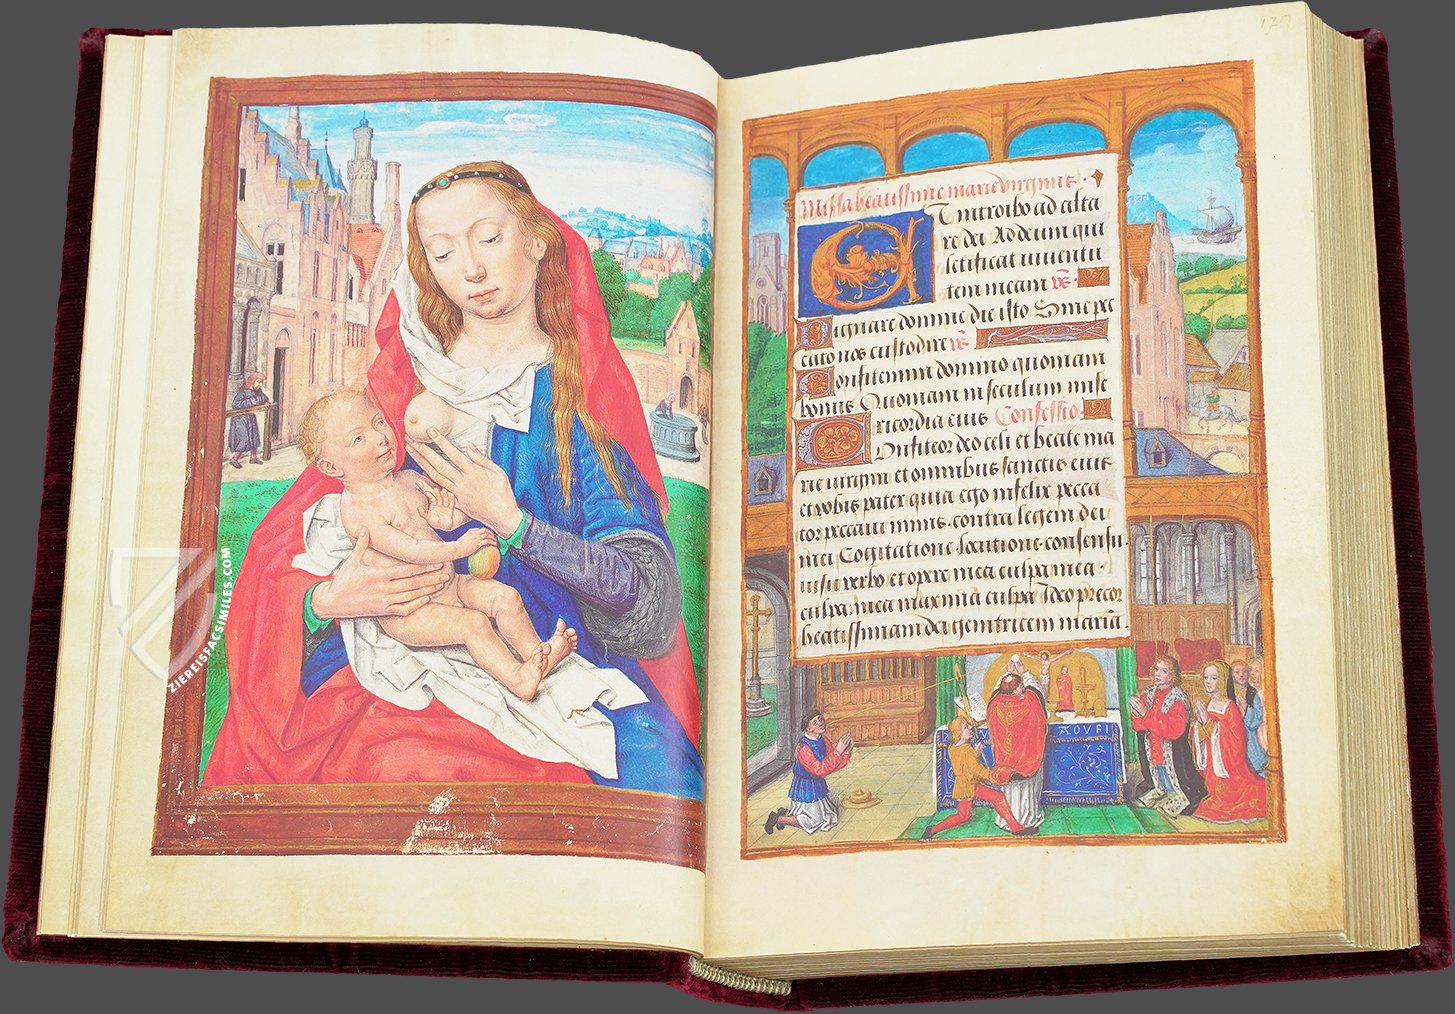 ZIEREISFACSIMILES.COM
Missa beatissime marie virginis
Et introibo ad alta
re dei Ad deum qui
letificat iuventu
tem meam vs
Dignare domine die isto Sine pec
cato nos custodire vs
Confitemini domino quoniam
bonus Quoniam in seculum mise
ricordia eius Confessio
Confiteor deo celi et beate ma
rie virgini et omnibus sanctis eius
et vobis pater quia ego infelix pecca
tor peccavi nimis contra legem dei
mei Cogitatione locutione consensu
visu verbo et opere mea culpa mea
culpa mea maxima culpa Ideo precor
beatissimam dei genitricem mariā
AOVFI